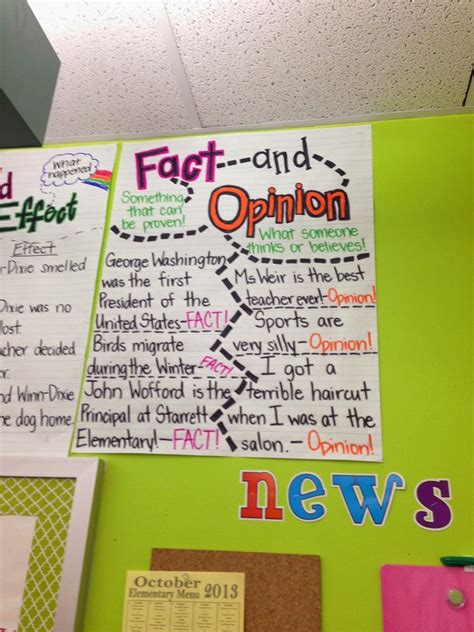 What
happened
d
Effect
Effect
r-Dixie smelled
Dixie was no
lost.
cher decided
r.
d Winn-Dixie
e dog home.
Fact and
Opinion
Something
that can
be proven!
What someone
thinks or believes!
George Washington
was the first
President of the
United States-FACT!
Birds migrate
during the Winter FACT!
John Wofford is the
Principal at Starrett
Elementary!-FACT!
Ms Weir is the best
teacher ever!-Opinion!
Sports are
very silly-Opinion!
I got a
terrible haircut
when I was at the
salon.-Opinion!
news
October
2013
Elementary Menu